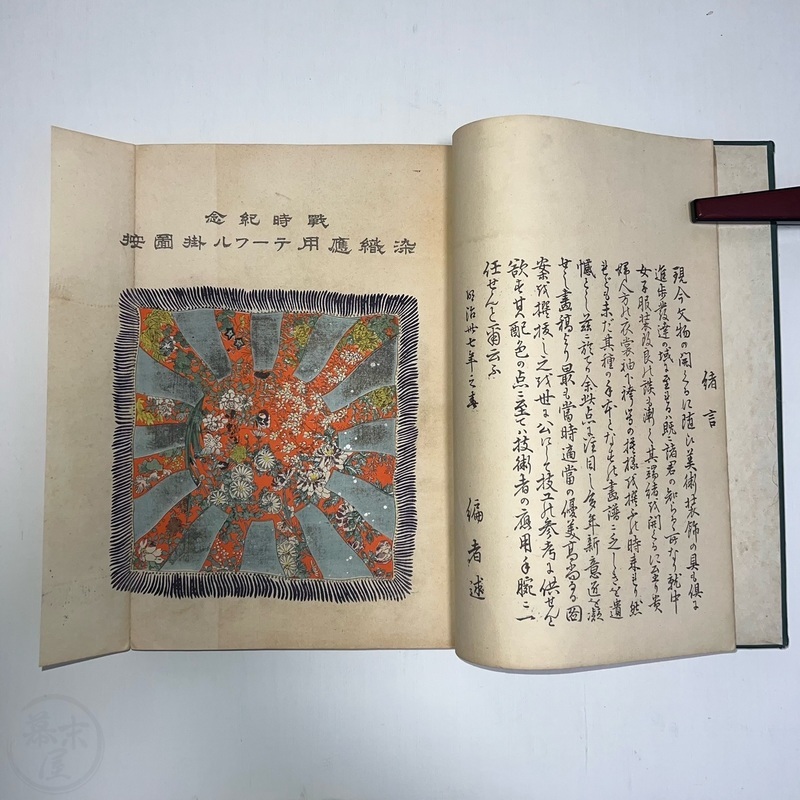 戰時紀念
染織應用テーフル掛圖按
緒言
現今文物の開くるに随ひ美術装飾の具も倶に
進歩發達の域に至れるハ既に諸君の知らるゝ所なり就中
女子服装改良の談も漸く其端緒を開くるに至り貴
婦人方の衣裳袖下袴等の模様を撰ふの時来れり然
れども未だ其種の手本となすべき畫譜に乏しきを遺
憾とし茲に於て余此点に注目し多年新意匠を凝
せし畫稿より最も當時適當の優美高尚なる圖
案を撰抜し之を世に公にして技工の参考に供せんと
欲す其配色の点に至てハ技術者の應用手腕に一
任せんと爾云ふ
明治卅七年之春
編者述
幕末屋